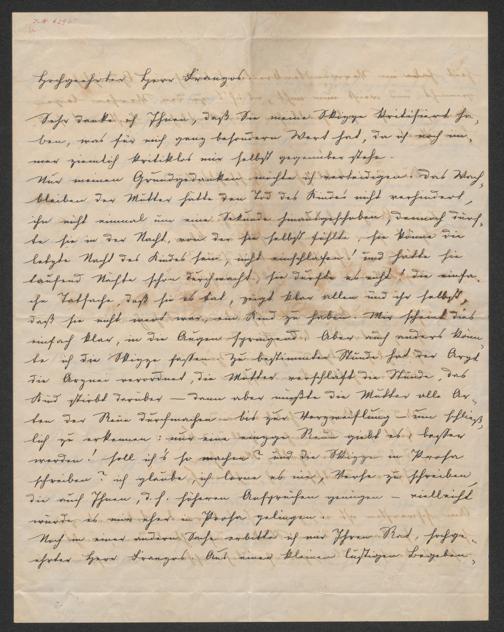 Hochgeehrter Herr Franzos
Sehr danke ich Ihnen, daß Sie meine Skizze kritisiert ha-
ben, was für mich ganz besondern Wert hat, da ich noch im-
mer ziemlich kritiklos mir selbst gegenüber stehe.
Nur meinen Grundgedanken möchte ich verteidigen. Das Wach-
bleiben der Mutter hätte den Tod des Kindes nicht verhindert,
ihn nicht einmal um eine Sekunde hinausgeschoben, dennoch durf-
te sie in der Nacht, von der sie selbst fühlte, sie könne die
letzte Nacht des Kindes sein, nicht einschlafen! und hätte sie
tausend Nächte schon durchwacht, sie durfte es nicht! die einfa-
che Tatsache, daß sie es tat, zeigt klar allen und ihr selbst,
daß sie nicht wert war, ein Kind zu haben. Mir scheint dies
einfach klar, in die Augen springend. Aber auch anders könn-
te ich die Skizze fassen. Zu bestimmter Stunde hat der Arzt
die Arznei verordnet, die Mutter verschläft die Stunde, das
Kind stirbt darüber – dann aber müßte die Mutter alle Ar-
ten der Reue durchmachen – bis zur Verzweiflung – um schließ-
lich zu erkennen: nur eine einzige Reue giebt es, besser
werden! soll ich's so machen? und die Skizze in Prosa
schreiben? ich glaube, ich lerne es nie, Verse zu schreiben,
die auch Ihnen, d. h. höheren Ansprüchen genügen – vielleicht
würde es mir eher in Prosa gelingen.
Noch in einer andern Sache erbitte ich mir Ihren Rat, hochge-
ehrter Herr Franzos. Aus einer kleinen lustigen Begeben-